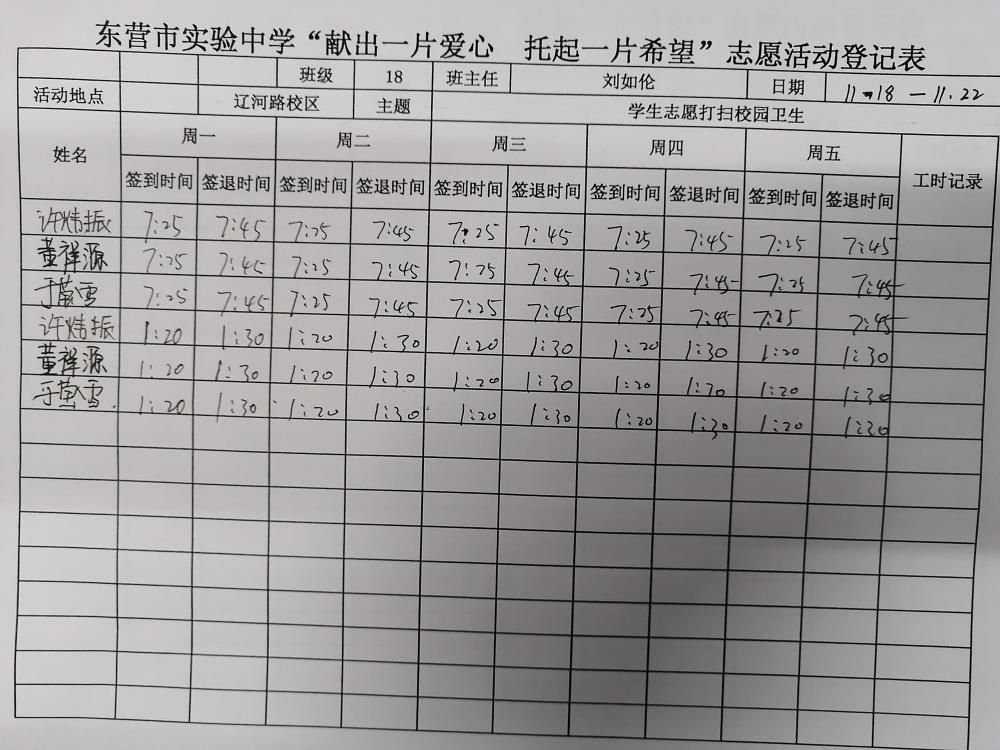 东营市实验中学“献出一片爱心 托起一片希望”志愿活动登记表
班级 18 班主任 刘如伦 日期 11.18 — 11.22
活动地点 辽河路校区 主题 学生志愿打扫校园卫生
姓名 周一 周二 周三 周四 周五 工时记录
签到时间 签退时间 签到时间 签退时间 签到时间 签退时间 签到时间 签退时间 签到时间 签退时间
许炜振 7:25 7:45 7:25 7:45 7:25 7:45 7:25 7:45 7:25 7:45
董祥源 7:25 7:45 7:25 7:45 7:25 7:45 7:25 7:45 7:25 7:45
于 雪 7:25 7:45 7:25 7:45 7:25 7:45 7:25 7:45 7:25 7:45
许炜振 1:20 1:30 1:20 1:30 1:20 1:30 1:20 1:30 1:20 1:30
董祥源 1:20 1:30 1:20 1:30 1:20 1:30 1:20 1:30 1:20 1:30
于 雪 1:20 1:30 1:20 1:30 1:20 1:30 1:20 1:30 1:20 1:30